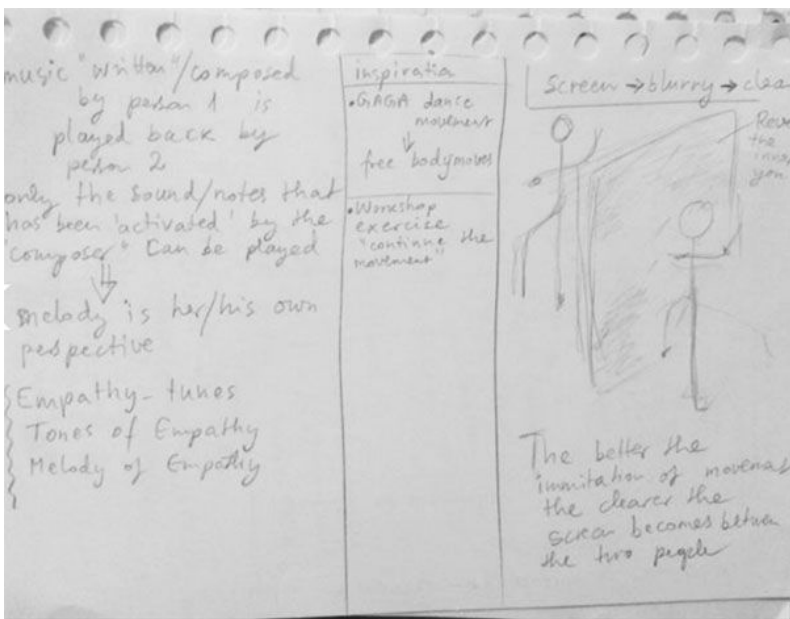 music "written"/composed
by person 1 is
played back by
person 2
only the sound/notes that
has been 'activated' by the
"composer" can be played
⇓
melody is her/his own
perspective
Empathy-tunes
Tones of Empathy
Melody of Empathy
inspiratio
•GAGA dance
movement
↓
free bodymoves
•Workshop
exercise
"continue the
movement"
Screen → blurry → clea
Reve
the
inne
you
The better the
immitation of movemen
the clearer the
screen becomes between
the two people